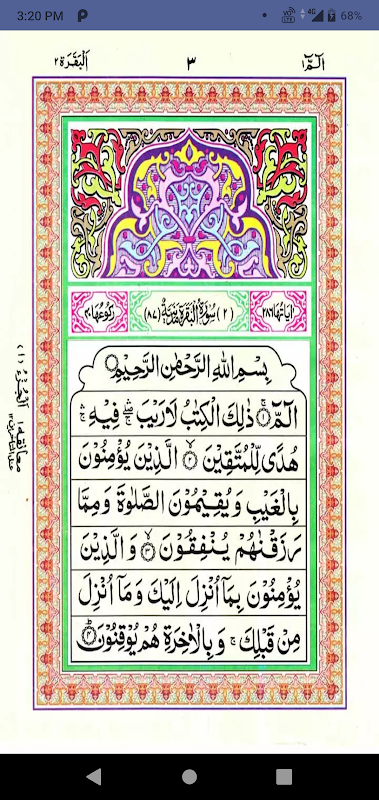 3:20 PM
4G
68%
الٓمّٓ ١
٣
اَلْبَقَرَة ٢
اٰيَاتُهَا ٢٨٦
(٢) سُوْرَةُ الْبَقَرَةِ مَدَنِيَّةٌ (٨٧)
رُكُوْعُهَا ٤٠
بِسْمِ اللّٰهِ الرَّحْمٰنِ الرَّحِيْمِ
الٓمّٓ ۚ ١ ذٰلِكَ الْكِتٰبُ لَا رَيْبَ ۛۖ فِيْهِ ۛۚ
هُدًى لِّلْمُتَّقِيْنَ ۙ ٢ الَّذِيْنَ يُؤْمِنُوْنَ
بِالْغَيْبِ وَيُقِيْمُوْنَ الصَّلٰوةَ وَمِمَّا
رَزَقْنٰهُمْ يُنْفِقُوْنَ ۙ ٣ وَالَّذِيْنَ
يُؤْمِنُوْنَ بِمَاۤ اُنْزِلَ اِلَيْكَ وَمَاۤ اُنْزِلَ
مِنْ قَبْلِكَ ۚ وَبِالْاٰخِرَةِ هُمْ يُوْقِنُوْنَ ؕ ٤
اَلْجُزْءُ (١)
معانقه ١